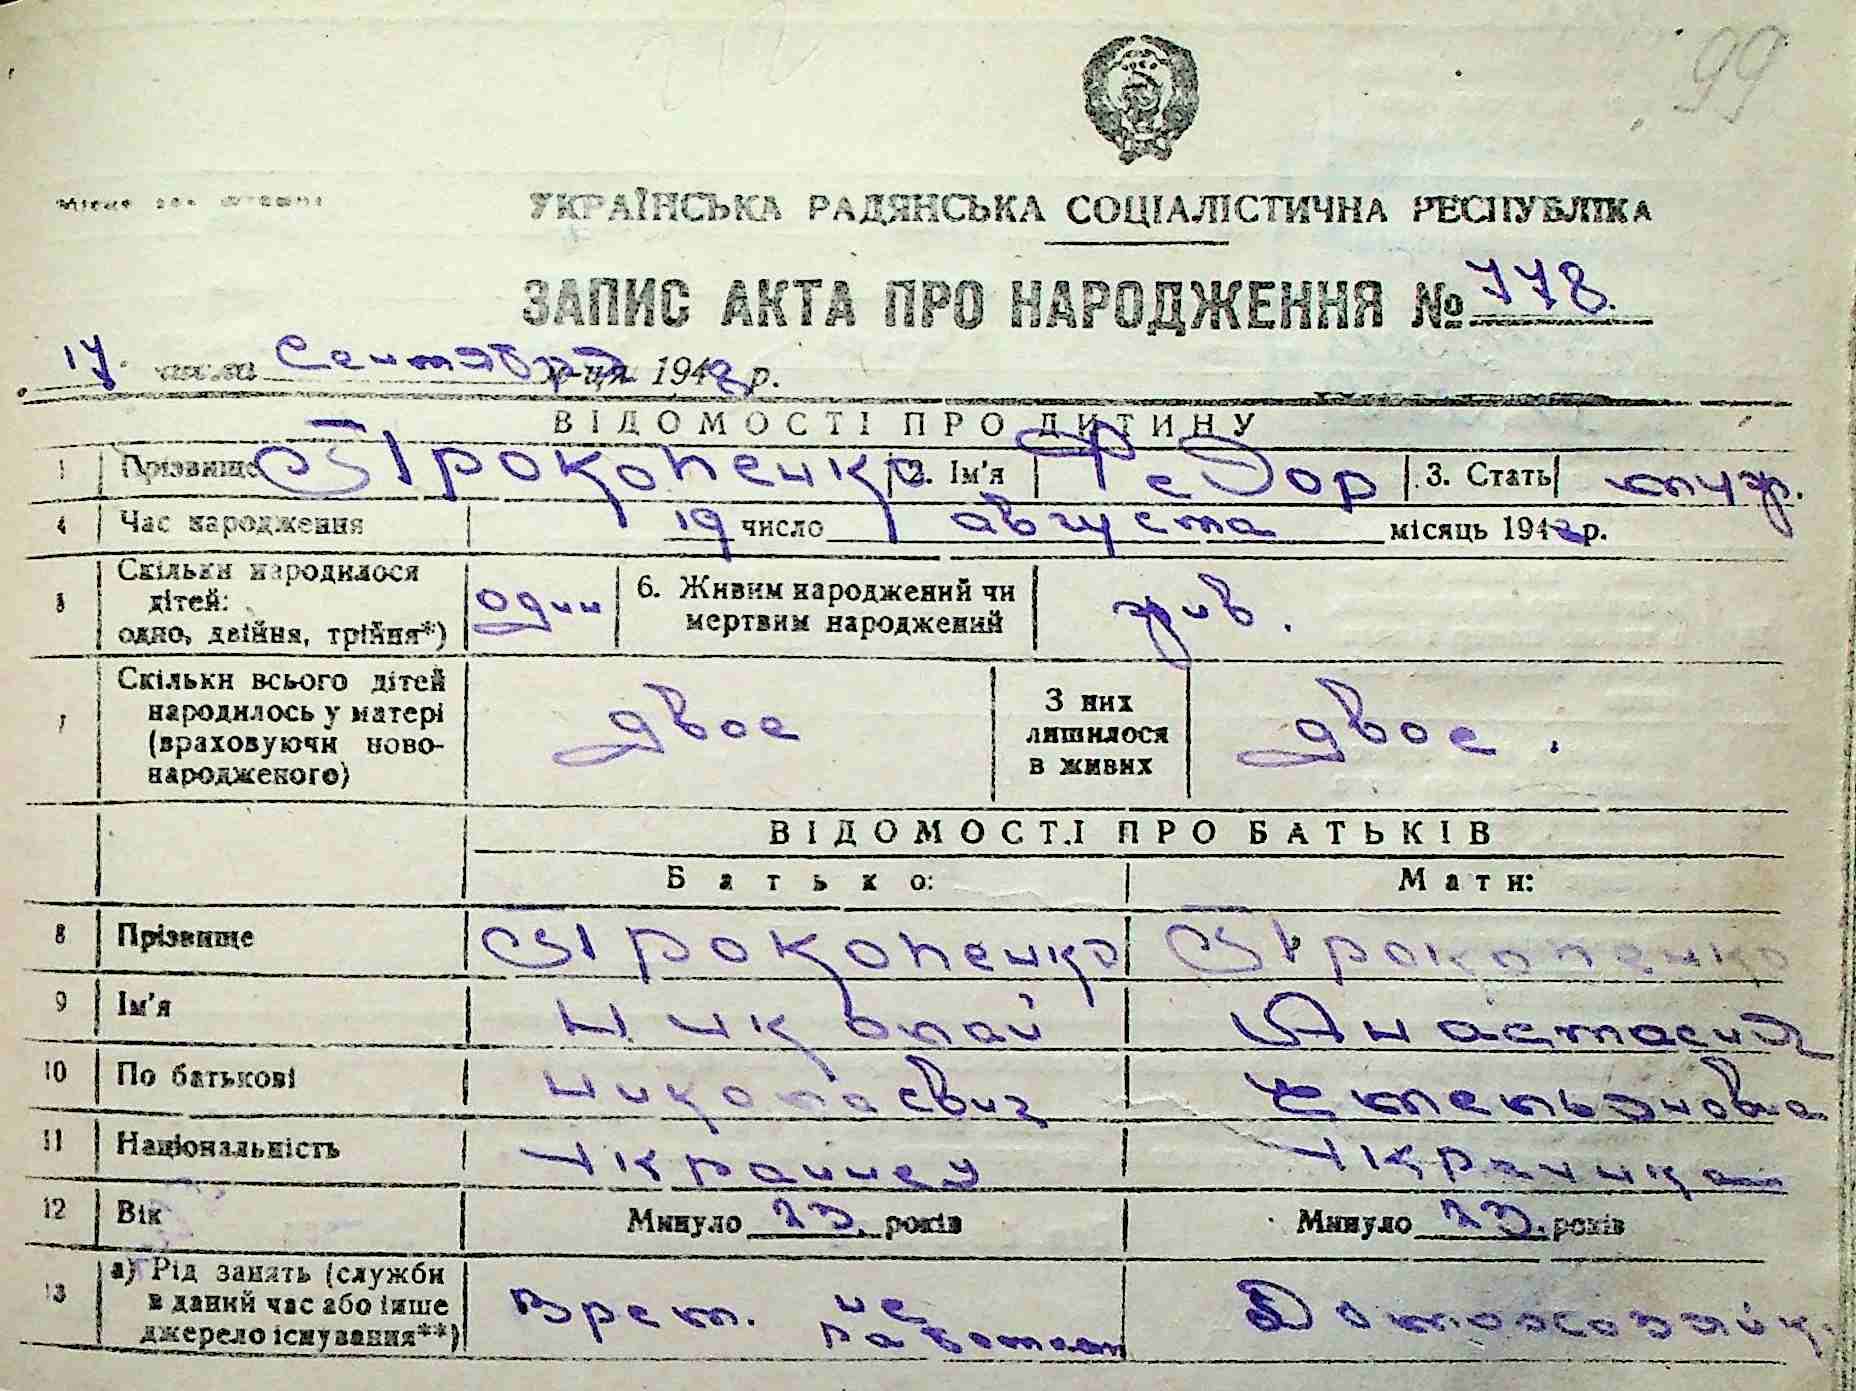 99
УКРАЇНСЬКА РАДЯНСЬКА СОЦІАЛІСТИЧНА РЕСПУБЛІКА
ЗАПИС АКТА ПРО НАРОДЖЕННЯ № 778.
17 числа Сентября м-ця 1948 р.
ВІДОМОСТІ ПРО ДИТИНУ
1 Прізвище Прокопенко 2. Ім'я Федор 3. Стать муж.
4 Час народження 19 число августа місяць 1948 р.
5 Скільки народилося дітей: одно, двійня, трійня*) один 6. Живим народжений чи мертвим народжений жив.
7 Скільки всього дітей народилось у матері (враховуючи новонародженого) двое З них лишилося в живих двое.
ВІДОМОСТІ ПРО БАТЬКІВ
Батько: Мати:
8 Прізвище Прокопенко Прокопенко
9 Ім'я Николай Анастасия
10 По батькові Николаевич Степановна
11 Національність Украинец Украинка
12 Вік Минуло 23. років Минуло 23. років
13 а) Рід занять (служби в даний час або інше джерело існування**) Врем. не работает Домохозяйка